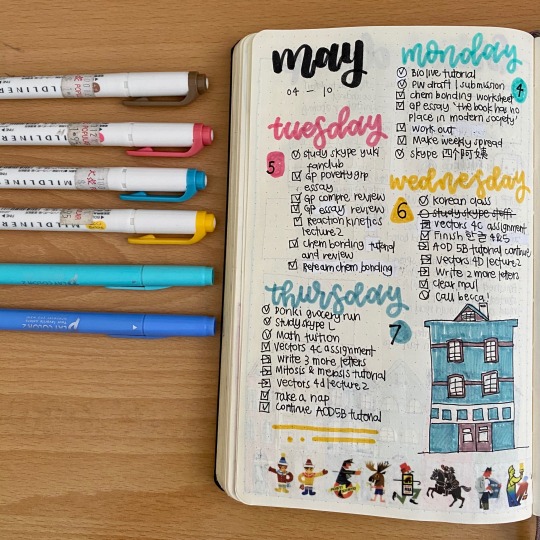 may
04 - 10
monday
4
Bio live tutorial
PW draft 1 submission
chem bonding worksheet
GP essay 'the book has no
place in modern society'
work out
Make weekly spread
skype 四个阿姨
tuesday
5
study skype yuki
fanclub
GP poverty grp
essay
GP compre review
GP essay review
Reaction kinetics
lecture 2
chem bonding tutorial
and review
Relearn chem bonding
wednesday
6
Korean class
study skype steffi
vectors 4C assignment
Finish 한글 4&5
AOD 5B tutorial continue
vectors 4D lecture 2
Write 2 more letters
clear mail
Call becca!
thursday
7
Donki grocery run
Study skype L
Math tuition
vectors 4C assignment
write 3 more letters
Mitosis & meiosis tutorial
vectors 4d lecture 2
Take a nap
Continue AOD5B tutorial
MILDLINER
MILDLINER
MILDLINER
MILDLINER